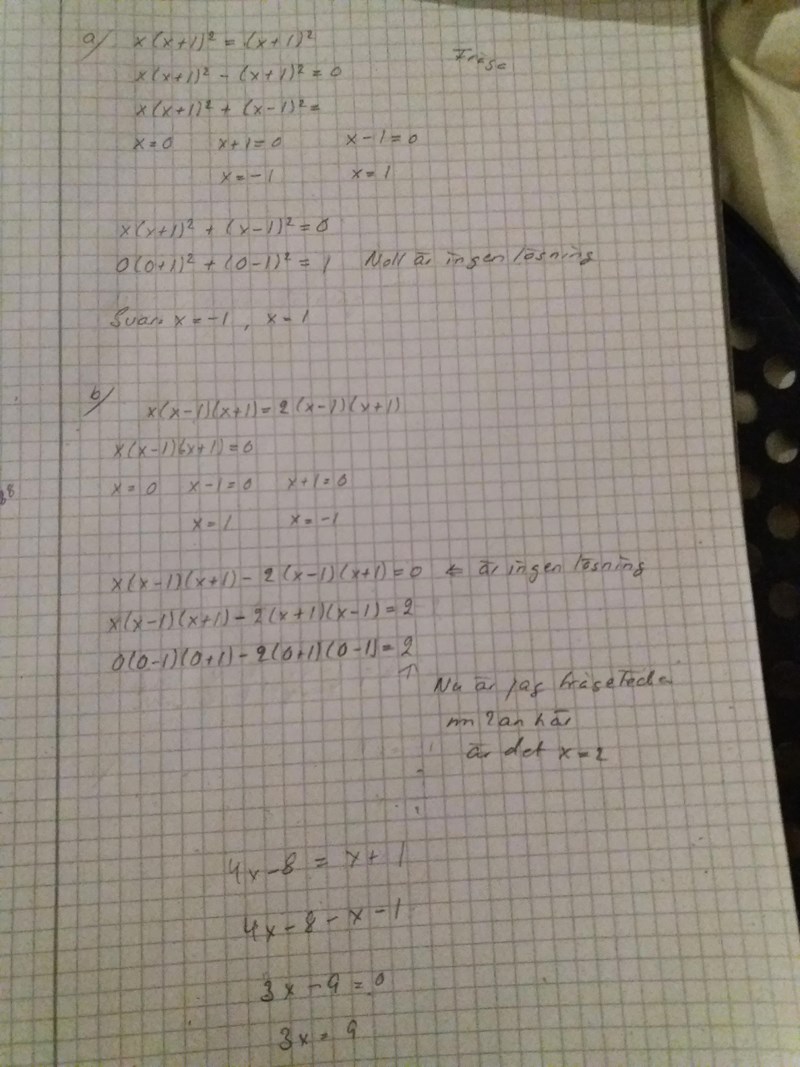 a) x(x+1)² = (x+1)²
Fråga
x(x+1)² - (x+1)² = 0
x(x+1)² + (x-1)² =
x=0 x+1=0 x-1=0
x=-1 x=1
x(x+1)² + (x-1)² = 0
0(0+1)² + (0-1)² = 1 Noll är ingen lösning
Svar: x = -1, x = 1
b) x(x-1)(x+1) = 2(x-1)(x+1)
x(x-1)(x+1) = 0
x=0 x-1=0 x+1=0
x=1 x=-1
x(x-1)(x+1) - 2(x-1)(x+1) = 0 ← är ingen lösning
x(x-1)(x+1) - 2(x+1)(x-1) = 2
0(0-1)(0+1) - 2(0+1)(0-1) = 2
↑
Nu är jag frågetecken
2an här
är det x=2
4x-8 = x+1
4x-8-x-1
3x-9=0
3x=9